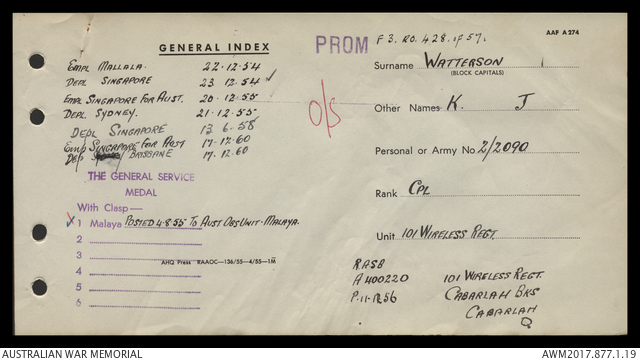 AAF A 274
GENERAL INDEX
PROM F3. RO. 428. of 57.
Empl MALLALA. 22.12.54
DEPL SINGAPORE 23 12.54
EMPL SINGAPORE FOR AUST. 20.12.55
DEPL SYDNEY. 21.12.55
DEPL SINGAPORE 13.6.58
EMP SINGAPORE FOR AUST 17.12.60
DEP BRISBANE 17.12.60
O/S
Surname WATTERSON
(BLOCK CAPITALS)
Other Names K. J
Personal or Army No 2/2090
Rank CPL
Unit 101 WIRELESS REGT.
THE GENERAL SERVICE
MEDAL
With Clasp—
X 1 Malaya POSTED 4.8.55 TO AUST OBS UNIT - MALAYA.
2
3
4
5
6
AHQ Press RAAOC—136/55—4/55—1M
RASB
A400220
P.11.12.56
101 WIRELESS REGT.
CABARLAH BKS
CABARLAH
Q
AUSTRALIAN WAR MEMORIAL
AWM2017.877.1.19